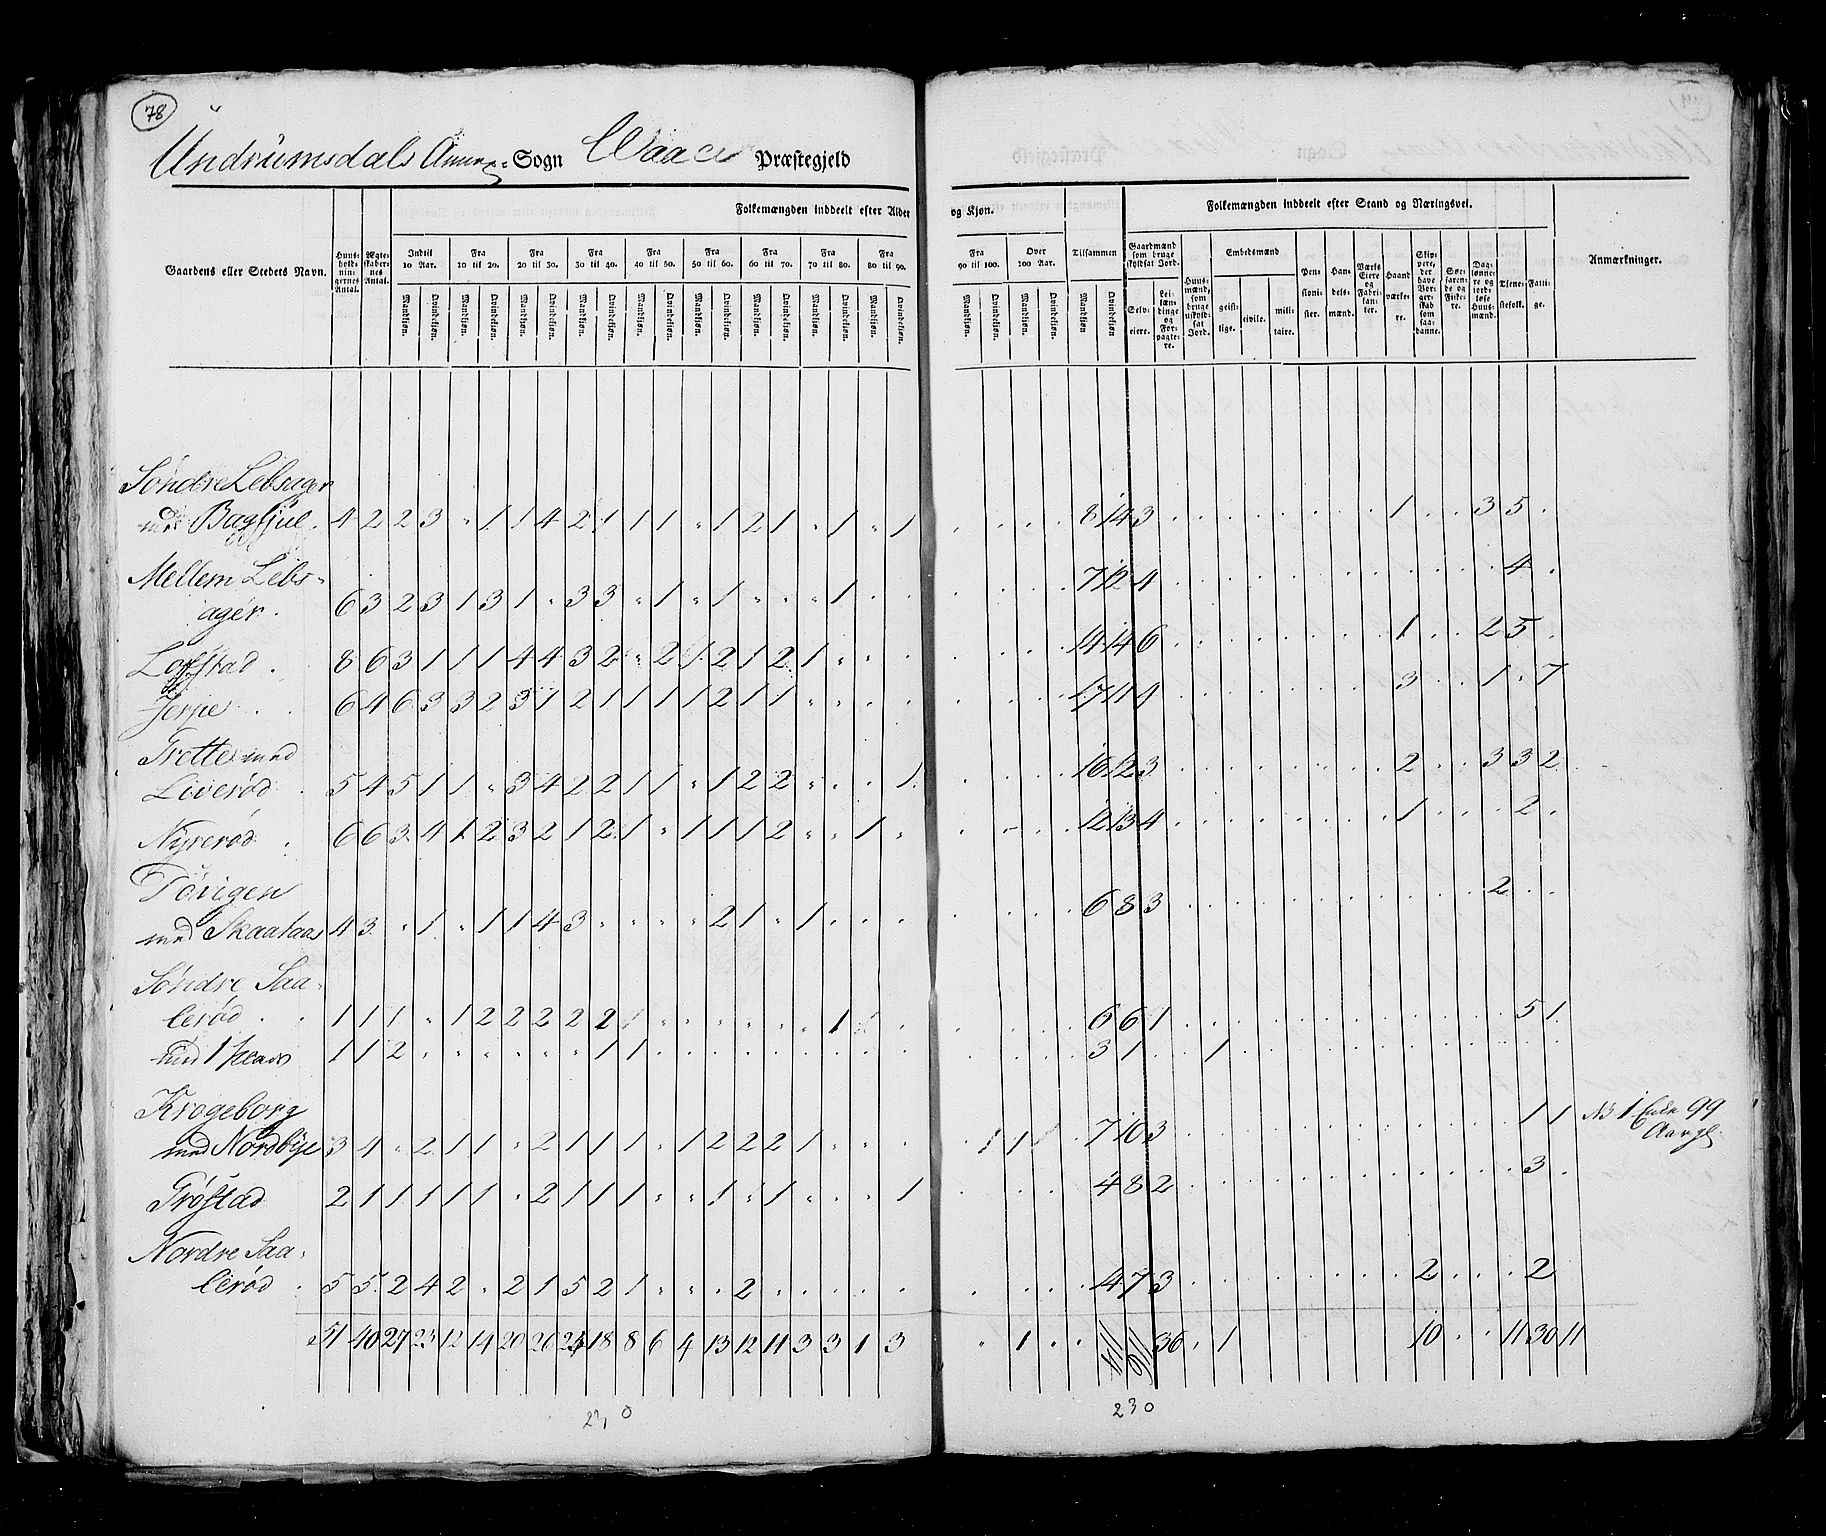 78
Undrumsdals Annex-Sogn Waale Præstegjeld
Folkemængden inddeelt efter Alder og Kjøn.
Folkemængden inddeelt efter Stand og Næringsvei.
Gaardens eller Stedets Navn.
Huusholdningernes Antal.
Ægteskabernes Antal.
Indtil 10 Aar.
Fra 10 til 20.
Fra 20 til 30.
Fra 30 til 40.
Fra 40 til 50.
Fra 50 til 60.
Fra 60 til 70.
Fra 70 til 80.
Fra 80 til 90.
Fra 90 til 100.
Over 100 Aar.
Tilsammen
Mandkjøn. Qvindekjøn.
Gaardmænd som bruge skyldsat Jord.
Selveiere.
Leilændinge og Forpagtere.
Huusmænd, som bruge uskyldsat Jord.
Embedsmænd
geistlige. civile. militaire.
Pensionister.
Handelsmænd.
Værks Eiere og Fabrikanter.
Haandværkere.
Skippere, der have Borgerskab som saadanne.
Søefarende og Fiskere.
Daglønnere og jordløse Huusmænd.
Tjenestefolk.
Fattige.
Anmærkninger.
Søndre Lebsager
med Bagfjul . 4 2 2 3 " 1 1 4 2 1 1 1 " 1 2 1 " 1 " 1 . . . . 8 14 3 . . . . . . . . 1 . . 3 5 .
Mellem Lebs-
ager . 6 3 2 3 1 3 1 " 3 3 " 1 " 1 " " " 1 . . . . . . 7 12 4 . . . . . . . . . . . . 4 .
Loffstad . 8 6 3 1 1 1 4 4 3 2 " 2 1 2 1 2 1 " . . . . . . 14 14 6 . . . . . . . . 1 . . 2 5 .
Jerpe . . 6 4 6 3 3 2 3 1 2 1 1 1 1 2 1 1 " . . . . . . . 17 11 4 . . . . . . . . 3 . . 1 . 7
Trette med
Liverød . 5 4 5 1 1 " 3 4 2 2 1 1 " 1 2 2 " . . 1 . . . . 16 12 3 . . . . . . . . 2 . . 3 3 2
Nyrerød . 6 6 3 4 1 2 3 2 1 2 1 " 1 1 1 2 " " 1 " . . . . 12 13 4 . . . . . . . . 1 . . . 2 .
Tøvigen
med Skaataas 4 3 " 1 " 1 1 4 3 " " " " 2 1 " 1 . . . . . . . 6 8 3 . . . . . . . . . . . 2 . .
Søndre Saa-
lerød . . 1 1 1 " 1 2 2 2 2 2 1 " " " " " " 1 . . . . . . 6 6 1 . . . . . . . . . . . . 5 1
med 1 plads 1 1 2 . . . . . . 1 1 . . . . . . . . . . . . . 3 1 . . 1 . . . . . . . . . . . .
Krogeborg
med Nordbye 3 4 " 2 1 1 " 2 1 1 1 " 1 2 2 2 1 . . . 1 1 . . 7 10 3 . . . . . . . . . . . . 1 1 NB 1 Enke 99
Aar gl.
Trøstad 2 1 1 1 1 1 " 2 1 1 1 " " 1 " 1 . . . 1 . . . . 4 8 2 . . . . . . . . . . . . 3 .
Nordre Saa-
lerød . 5 5 2 4 2 " 2 1 5 2 1 " " . 2 . . . . . . . . . 4 7 3 . . . . . . . . 2 . . . 2
51 40 27 23 12 14 20 26 24 18 8 6 4 13 12 11 3 3 1 3 " 1 . . 36 . 1 10 . . 11 30 11
230
230